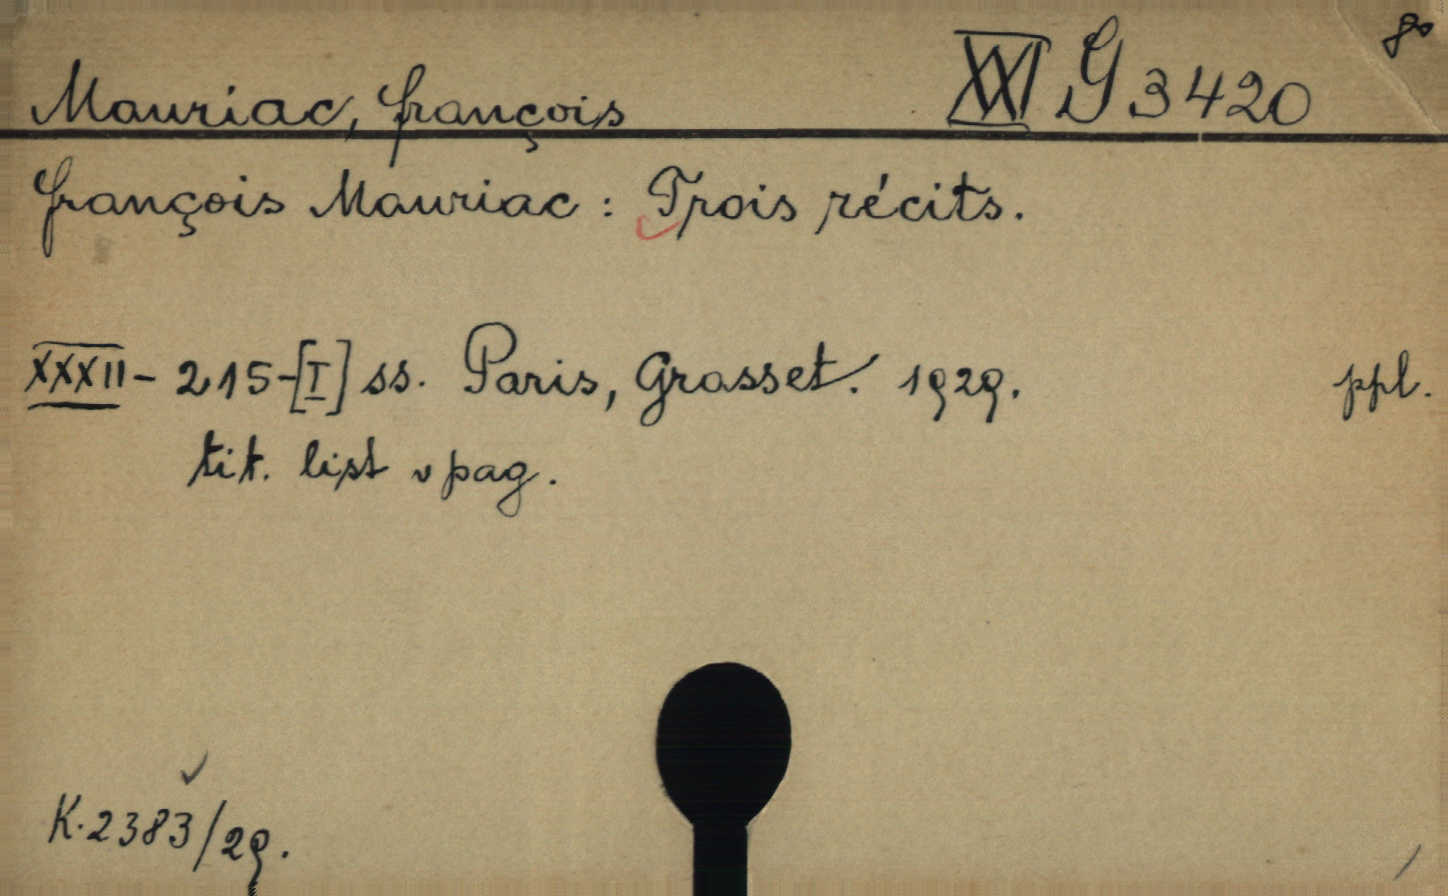 8°
Mauriac, François XXI G 3420
François Mauriac : Trois récits.
XXXII - 215 - [I] ss. Paris, Grasset. 1929. ppl.
tit. list v pag.
K. 2383/29.